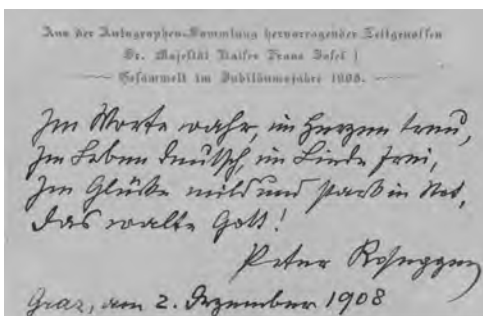 Aus der Autographen-Sammlung hervorragender Zeitgenossen
Sr. Majestät Kaiser Franz Josef I
Gesammelt im Jubiläumsjahre 1908.
Im Worte wahr, im Herzen treu,
Im Leben deutsch, im Liede frei,
Im Glücke mild und stark in Not,
Das walte Gott!
Peter Rosegger
Graz, am 2. Dezember 1908